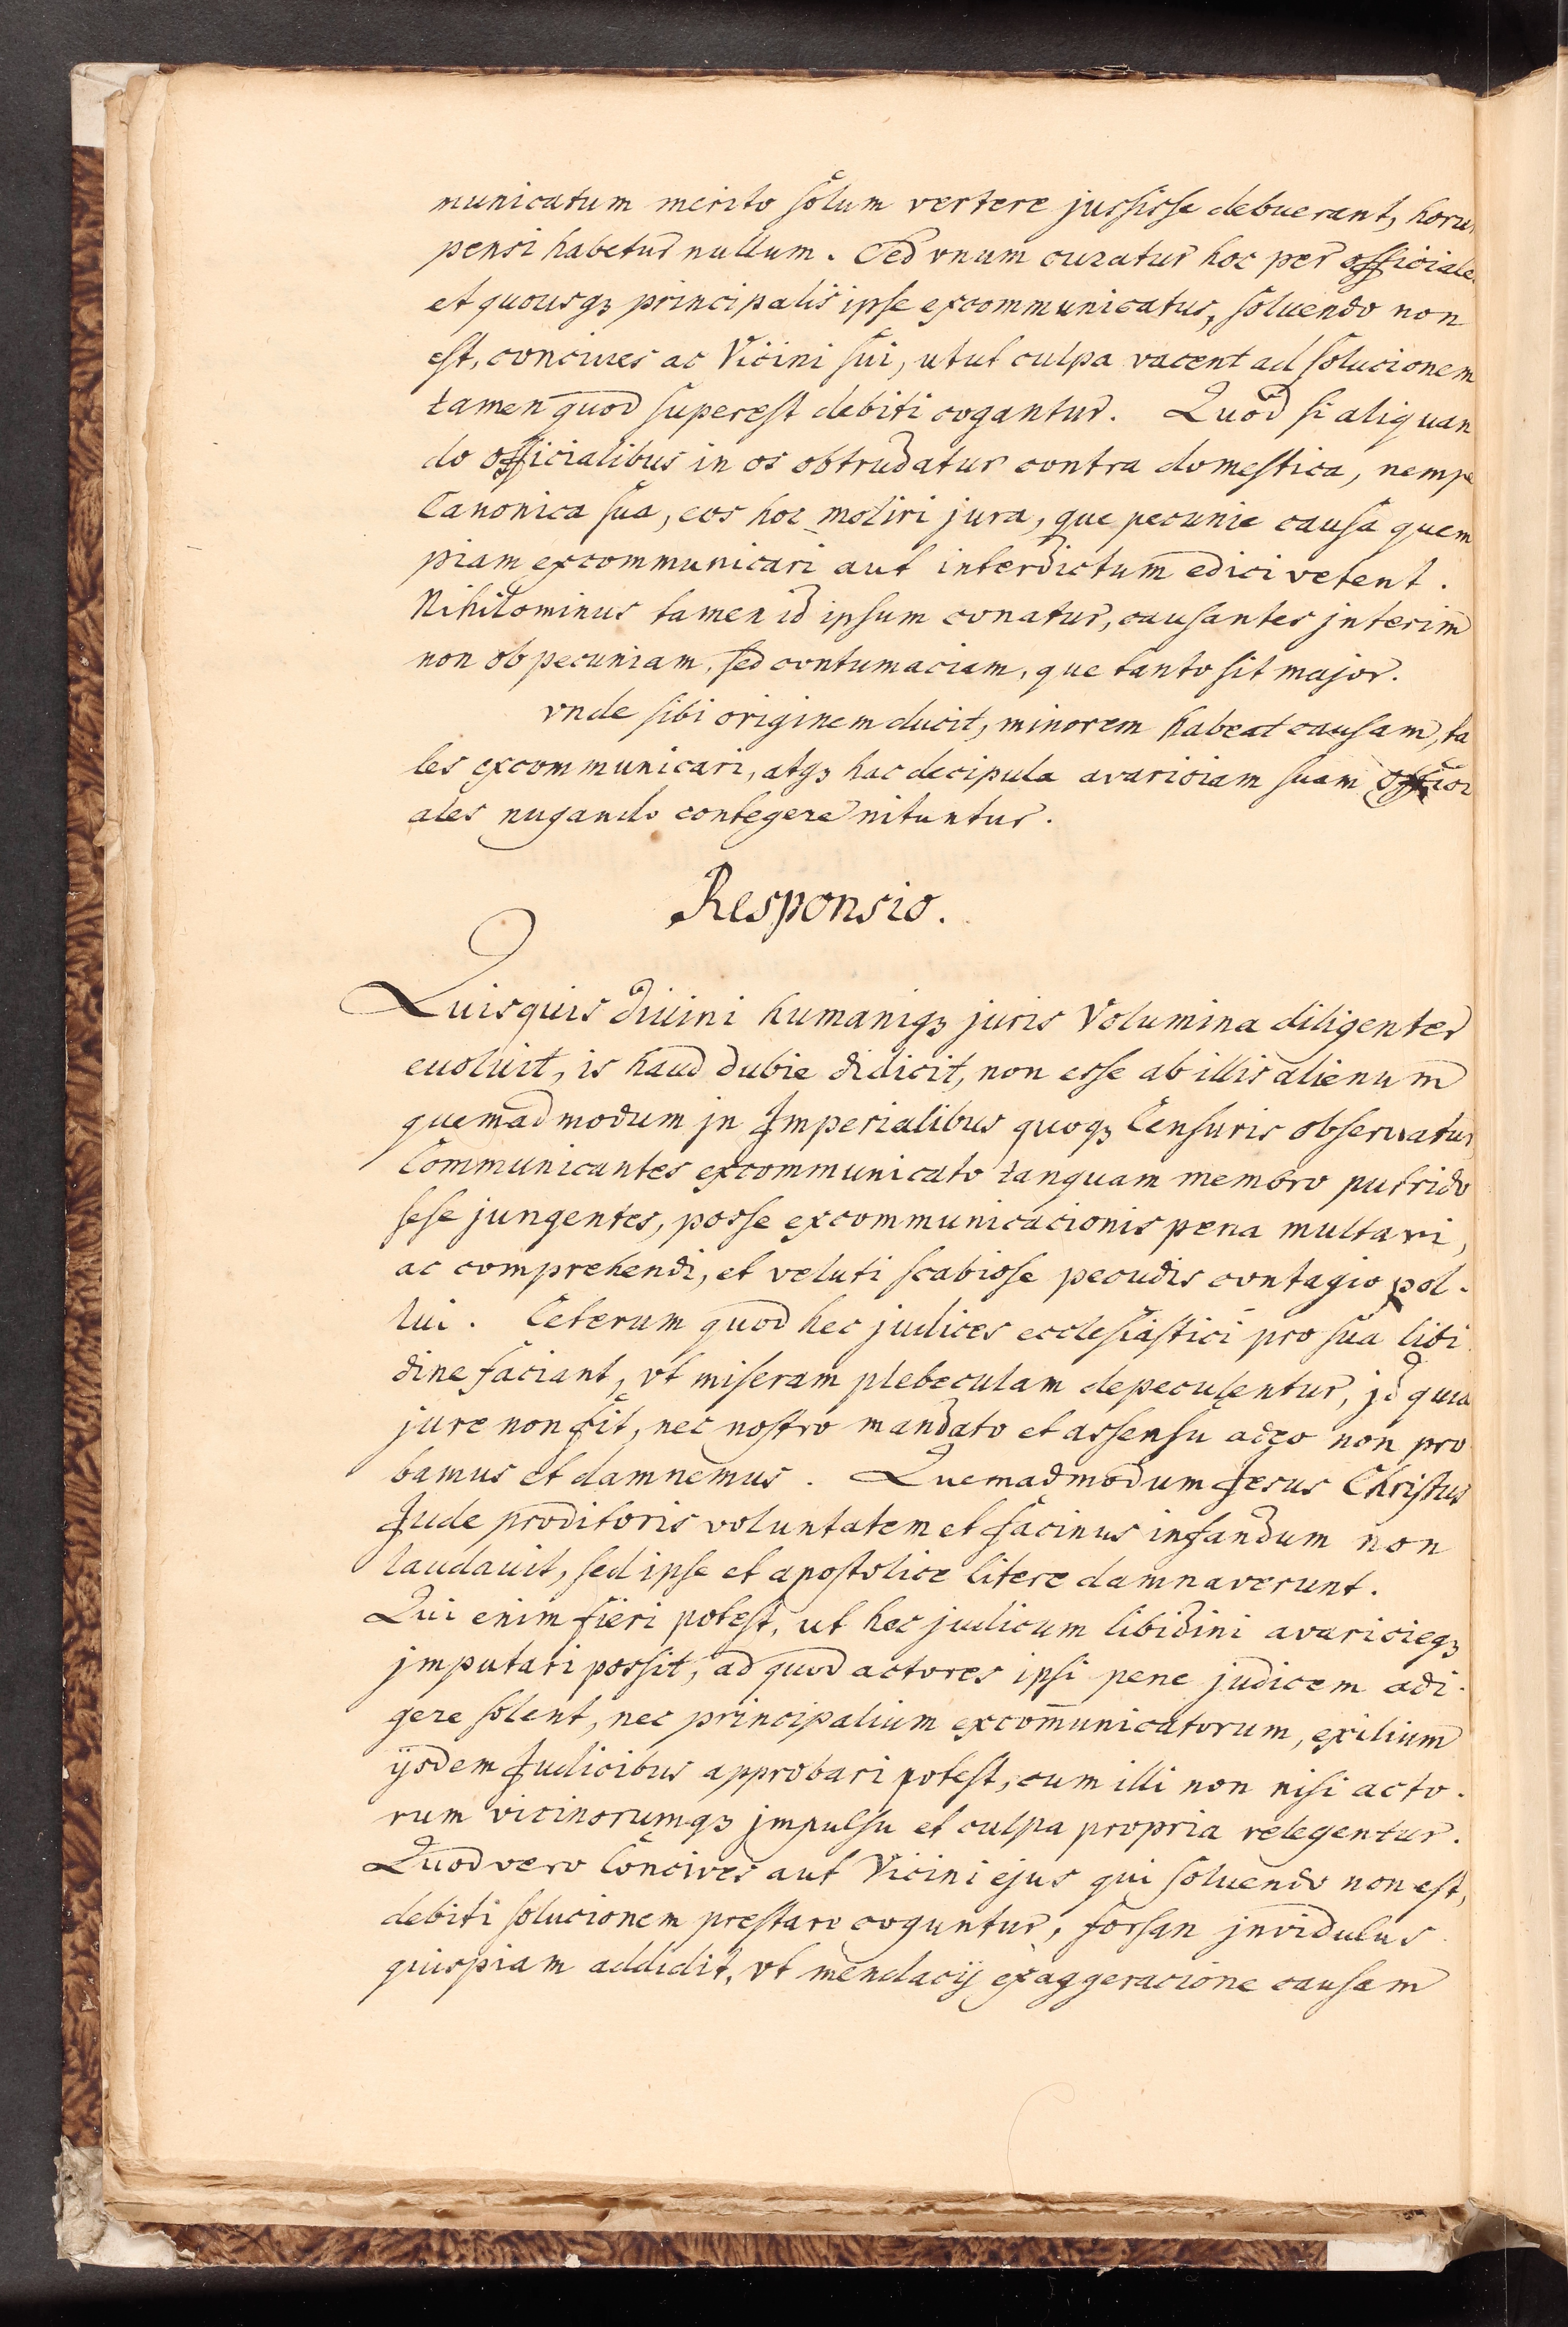 municatum merito solum vertere jussisse debuerant, horu
pensi habetur nullum. Sed vnum curatur hoc per officiale
et quousqȝ principalis ipse excommunicatus, soluendo non
est, conciues ac Vicini sui, utut culpa vacent ad solucionem
tamen quod superest debiti cogantur. Quod si aliquan
do officialibus in os obtrudatur contra domestica, nempe
Canonica sua, eos hoc moliri jura, que pecunie causa quem
piam excommunicari aut interdictum edici vetent.
Nihilominus tamen id ipsum conatur, causantes jnterim
non ob pecuniam, sed contumaciam, que tanto sit major.
vnde sibi originem ducit, minorem habeat causam, ta
les excommunicari, atqȝ hac decipula avariciam suam offici
ales nugando contegere nituntur.
Responsio.
Quisquis diuini humaniqȝ juris Volumina diligenter
euoluit, is haud dubie didicit, non esse ab illis alienum
quemadmodum jn Imperialibus quoqȝ Censuris obseruatur
Communicantes excommunicato tanquam membro putrido
sese jungentes, posse excommunicacionis pena multari,
ac comprehendi, et veluti scabiose pecudis contagio pol-
lui. Ceterum quod hec judices ecclesiastici pro sua libi
dine faciant, vt miseram plebeculam depeculentur, jd quia
jure non fit, nec nostro mandato et assensu adeo non pro
bamus et damnemus. Quemadmodum Jesus Christus
Jude proditoris voluntatem et facinus infandum non
laudauit, sed ipse et apostolice litere damnaverunt.
Qui enim fieri potest, ut hec judicum libidini avaricieqȝ
jmputari possit, ad quod actores ipsi pene judicem adi-
gere solent, nec principalium excom̄unicatorum, exilium
ijsdem Judicibus approbari potest, cum illi non nisi acto-
rum vicinorumqȝ jmpulsu et culpa propria relegentur.
Quod vero Concives aut Vicini ejus qui soluendo non est,
debiti solucionem prestare coguntur, forsan jnvidulus
quispiam addidit, vt mendacij exaggeracione causam